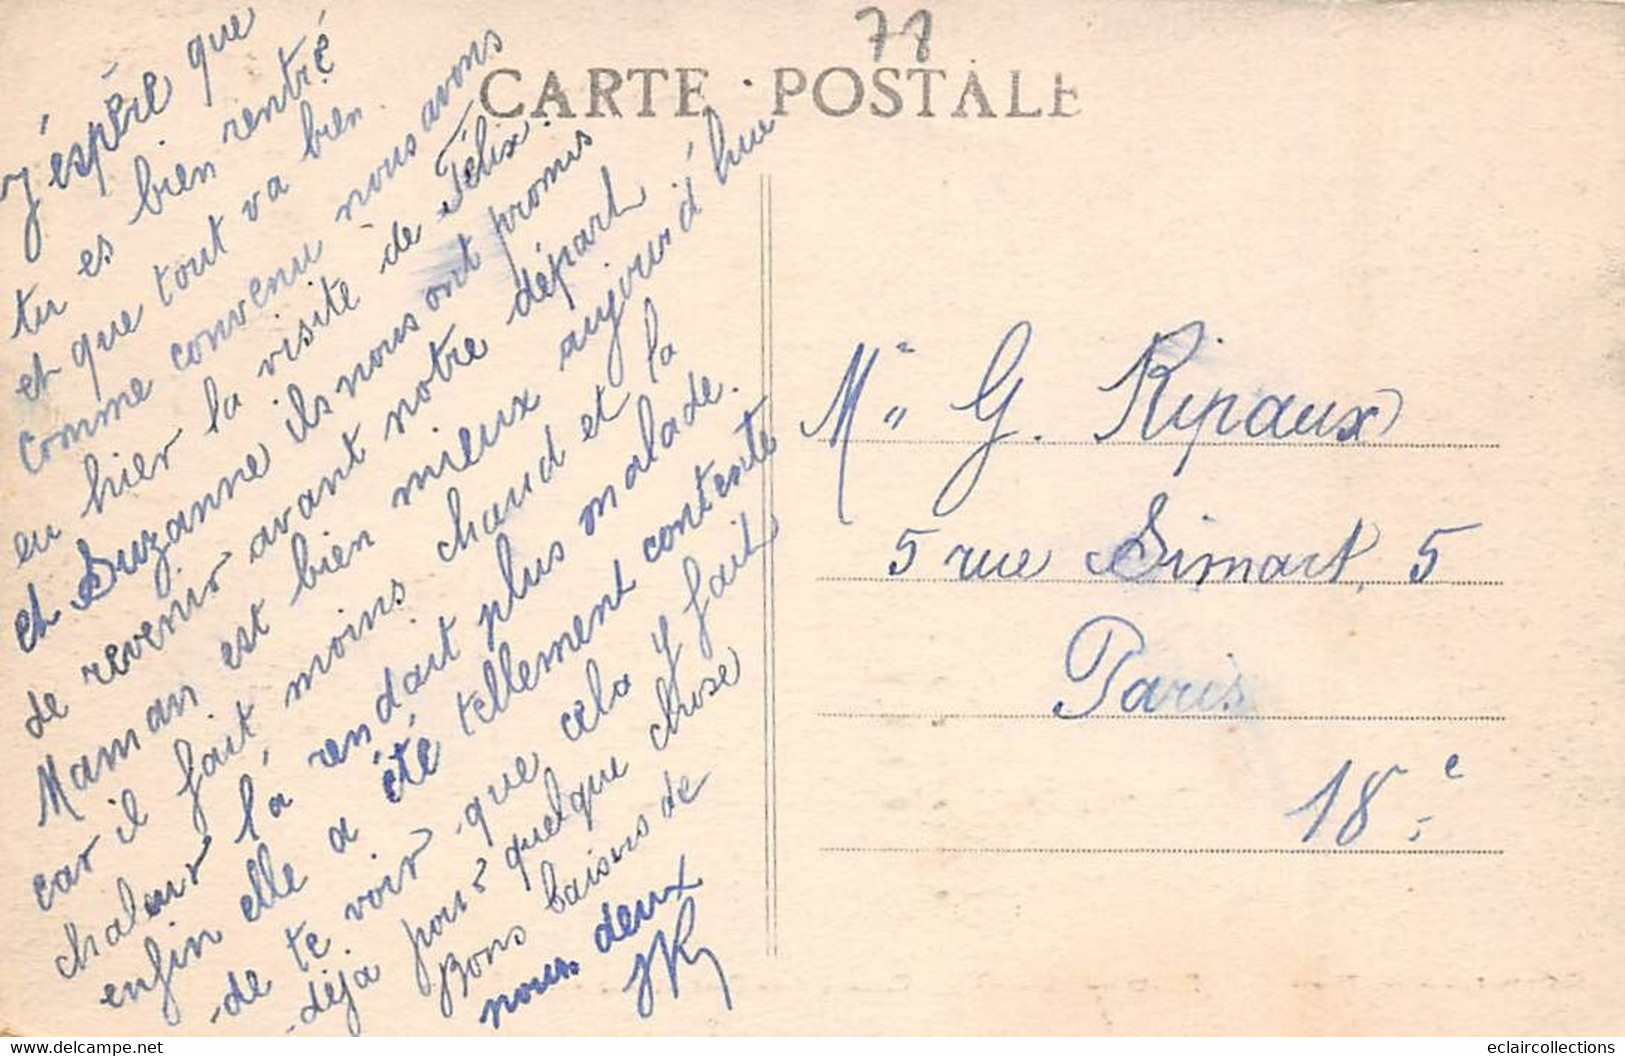 71
CARTE POSTALE
J'éspère que
tu es bien rentré
et que tout va bien
comme convenu nous avons
eu hier la visite de Félix
et Suzanne ils nous ont promis
de revenir avant notre départ
Maman est bien mieux aujourd'hui
car il fait moins chaud et la
chaleur la rendait plus malade.
enfin elle a été tellement contente
de te voir que cela y fait
déjà pour quelque chose
Bons baisers de
nous deux
Mr G. Ripaux
5 rue Simart, 5
Paris
18e
Delcampe.net
eclaircollections